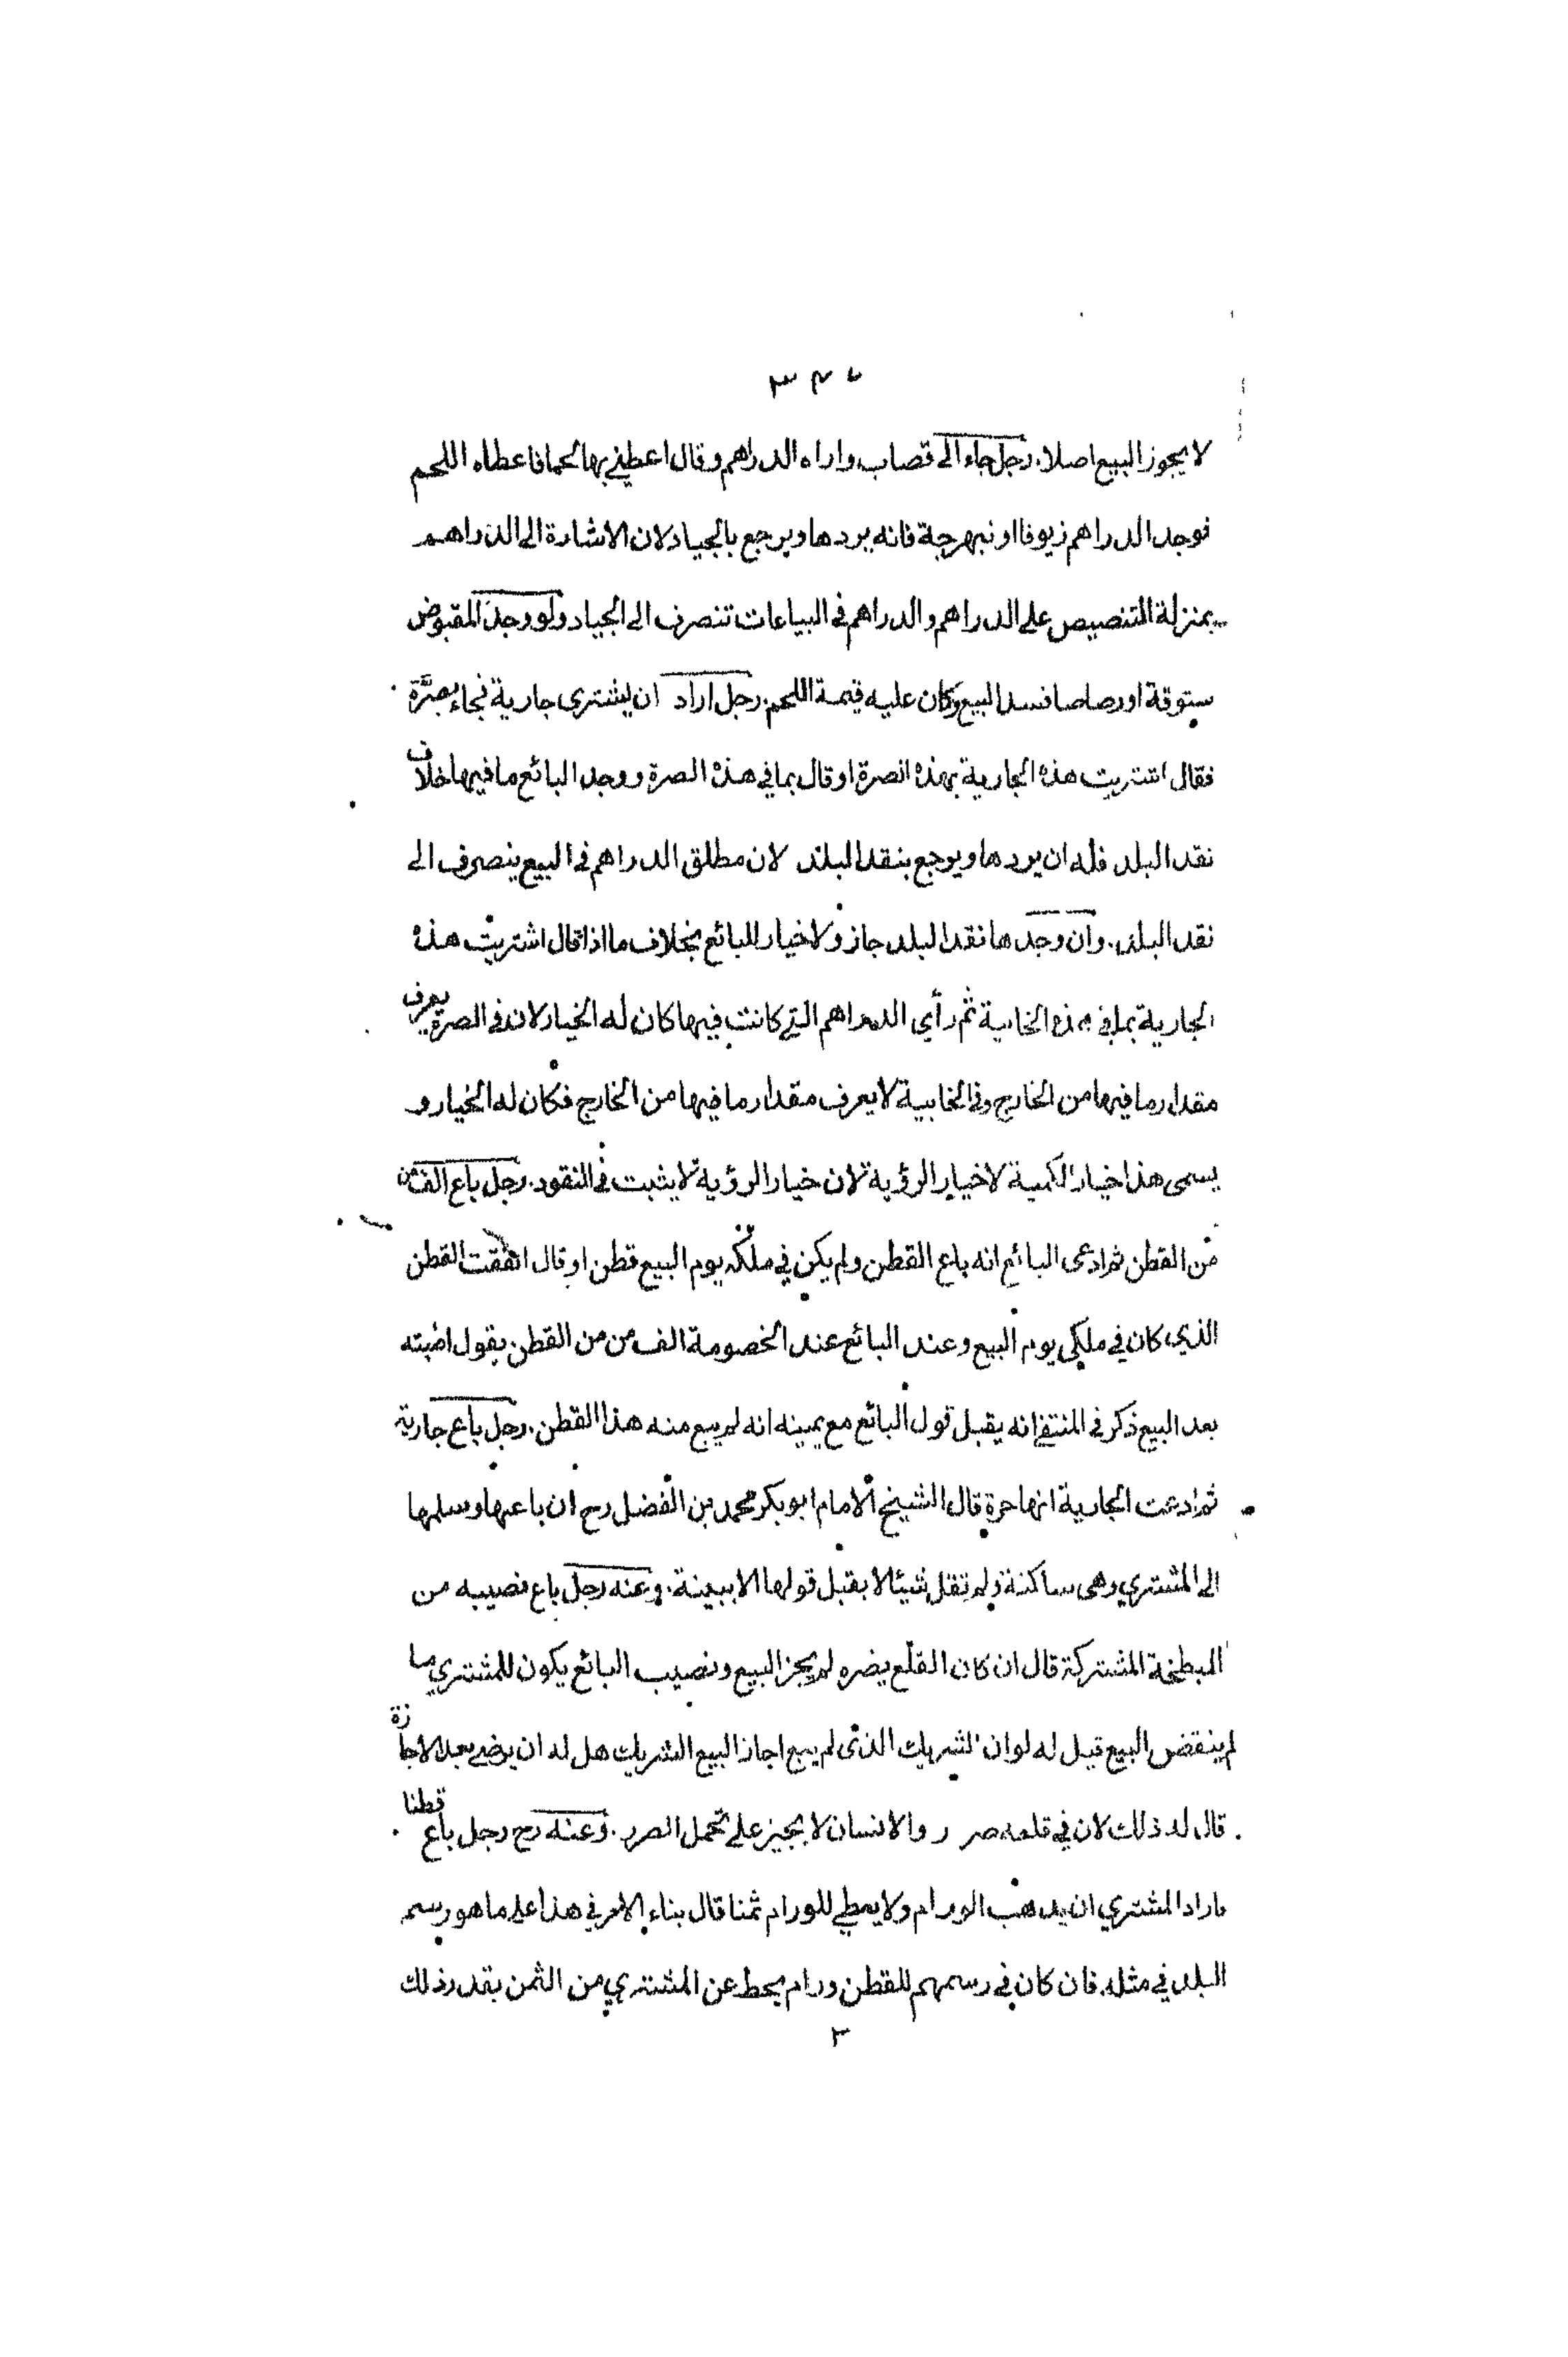 لا يجوز البيع اصلا. رجل جاء الى قصاب واراه الدراهم وقال اعطني بها لحما فاعطاه اللحم
فوجد الدراهم زيوفا او نبهرجة فانه يردها ويرجع بالجياد لان الاشارة الى الدراهم
بمنزلة التنصيص على الدراهم والدراهم في البياعات تنصرف الى الجياد ولو وجد المقبوض
ستوقة او رصاصا فسد البيع وكان عليه قيمة اللحم. رجل اراد ان يشتري جارية فجاء بصرّة
فقال اشتريت هذه الجارية بهذه الصرة او قال بما في هذه الصرة ووجد البائع ما فيها خلاف
نقد البلد فله ان يردها ويرجع بنقد البلد لان مطلق الدراهم في البيع ينصرف الى
نقد البلد. وان وجدها نقد البلد جاز ولا خيار للبائع بخلاف ما اذا قال اشتريت هذه
الجارية بما في هذه الخابية ثم رأي الدراهم التي كانت فيها كان له الخيار لانه في الصرة يعرف
مقدار ما فيها من الخارج وفي الخابية لا يعرف مقدار ما فيها من الخارج فكان له الخيار و
يسمى هذا خيار الكمية لا خيار الرؤية لان خيار الرؤية لا يثبت في النقود. رجل باع الف من
من القطن ثم ادعى البائع انه باع القطن ولم يكن في ملكه يوم البيع قطن او قال انفقت القطن
الذي كان في ملكي يوم البيع وعند البائع عند الخصومة الف من من القطن يقول اصبته
بعد البيع ذكر في المنتقى انه يقبل قول البائع مع يمينه انه لم يبع منه هذا القطن. رجل باع جارية
ثم ادعت الجارية انها حرة قال الشيخ الامام ابو بكر محمد بن الفضل رح ان باعها وسلمها
الى المشتري وهى ساكتة ولم تقل شيئا لا يقبل قولها الا ببينة. وعنه رجل باع نصيبه من
المبطخة المشتركة قال ان كان القلع يضره لم يجز البيع ونصيب البائع يكون للمشتري ما
لم ينقض البيع قيل له لو ان الشريك الذى لم يبع اجاز البيع الشريك هل له ان يرضى بعد الاجازة
قال له ذلك لان في قلعه ضررا والانسان لا يجبر على تحمل الضرر. وعنه رح رجل باع قطنا
فاراد المشتري ان يذهب الورام ولا يعطي للورام ثمنا قال بناء الامر في هذا على ما هو رسم
البلد في مثله. فان كان في رسمهم للقطن ورام يحط عن المشتري من الثمن بقدر ذلك
٣